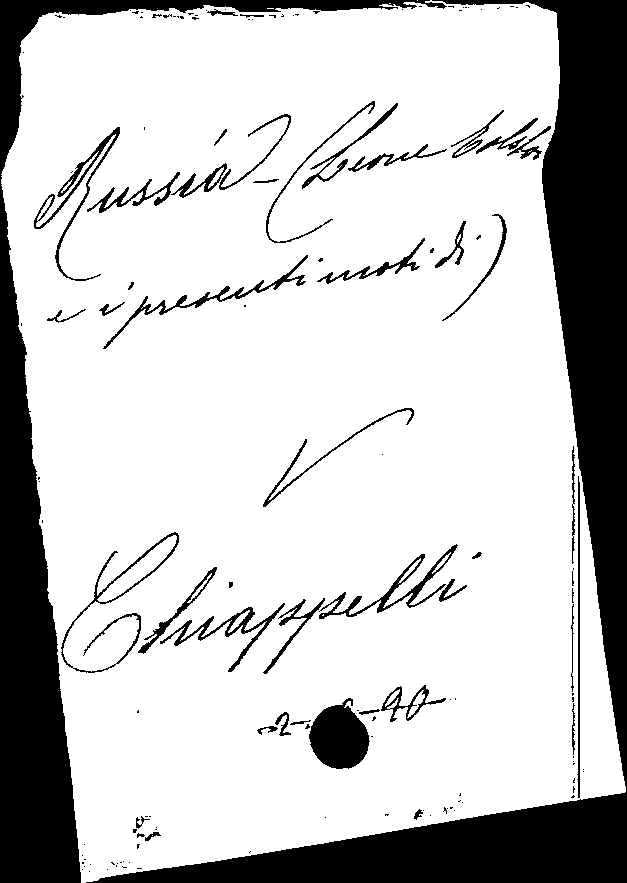 Russia - (Leone Tolstoi
e i presenti moti di)
V
Chiappelli